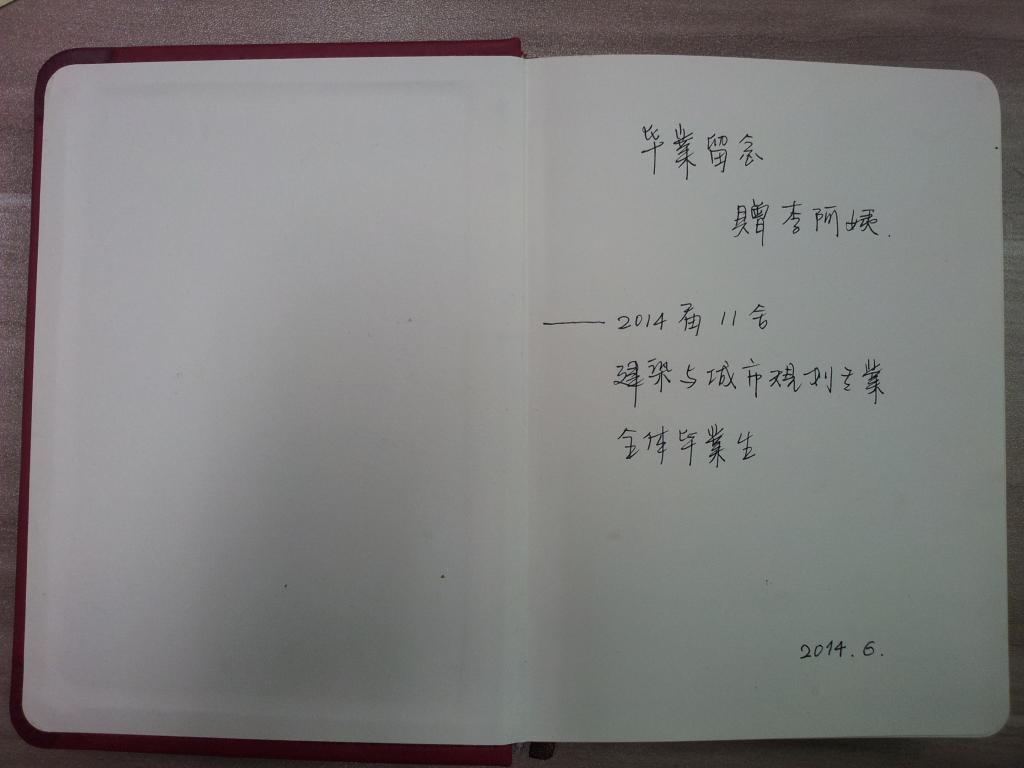 毕業留念
贈李阿姨.
——2014届11舍
建築与城市規划专業
全体毕業生
2014.6.